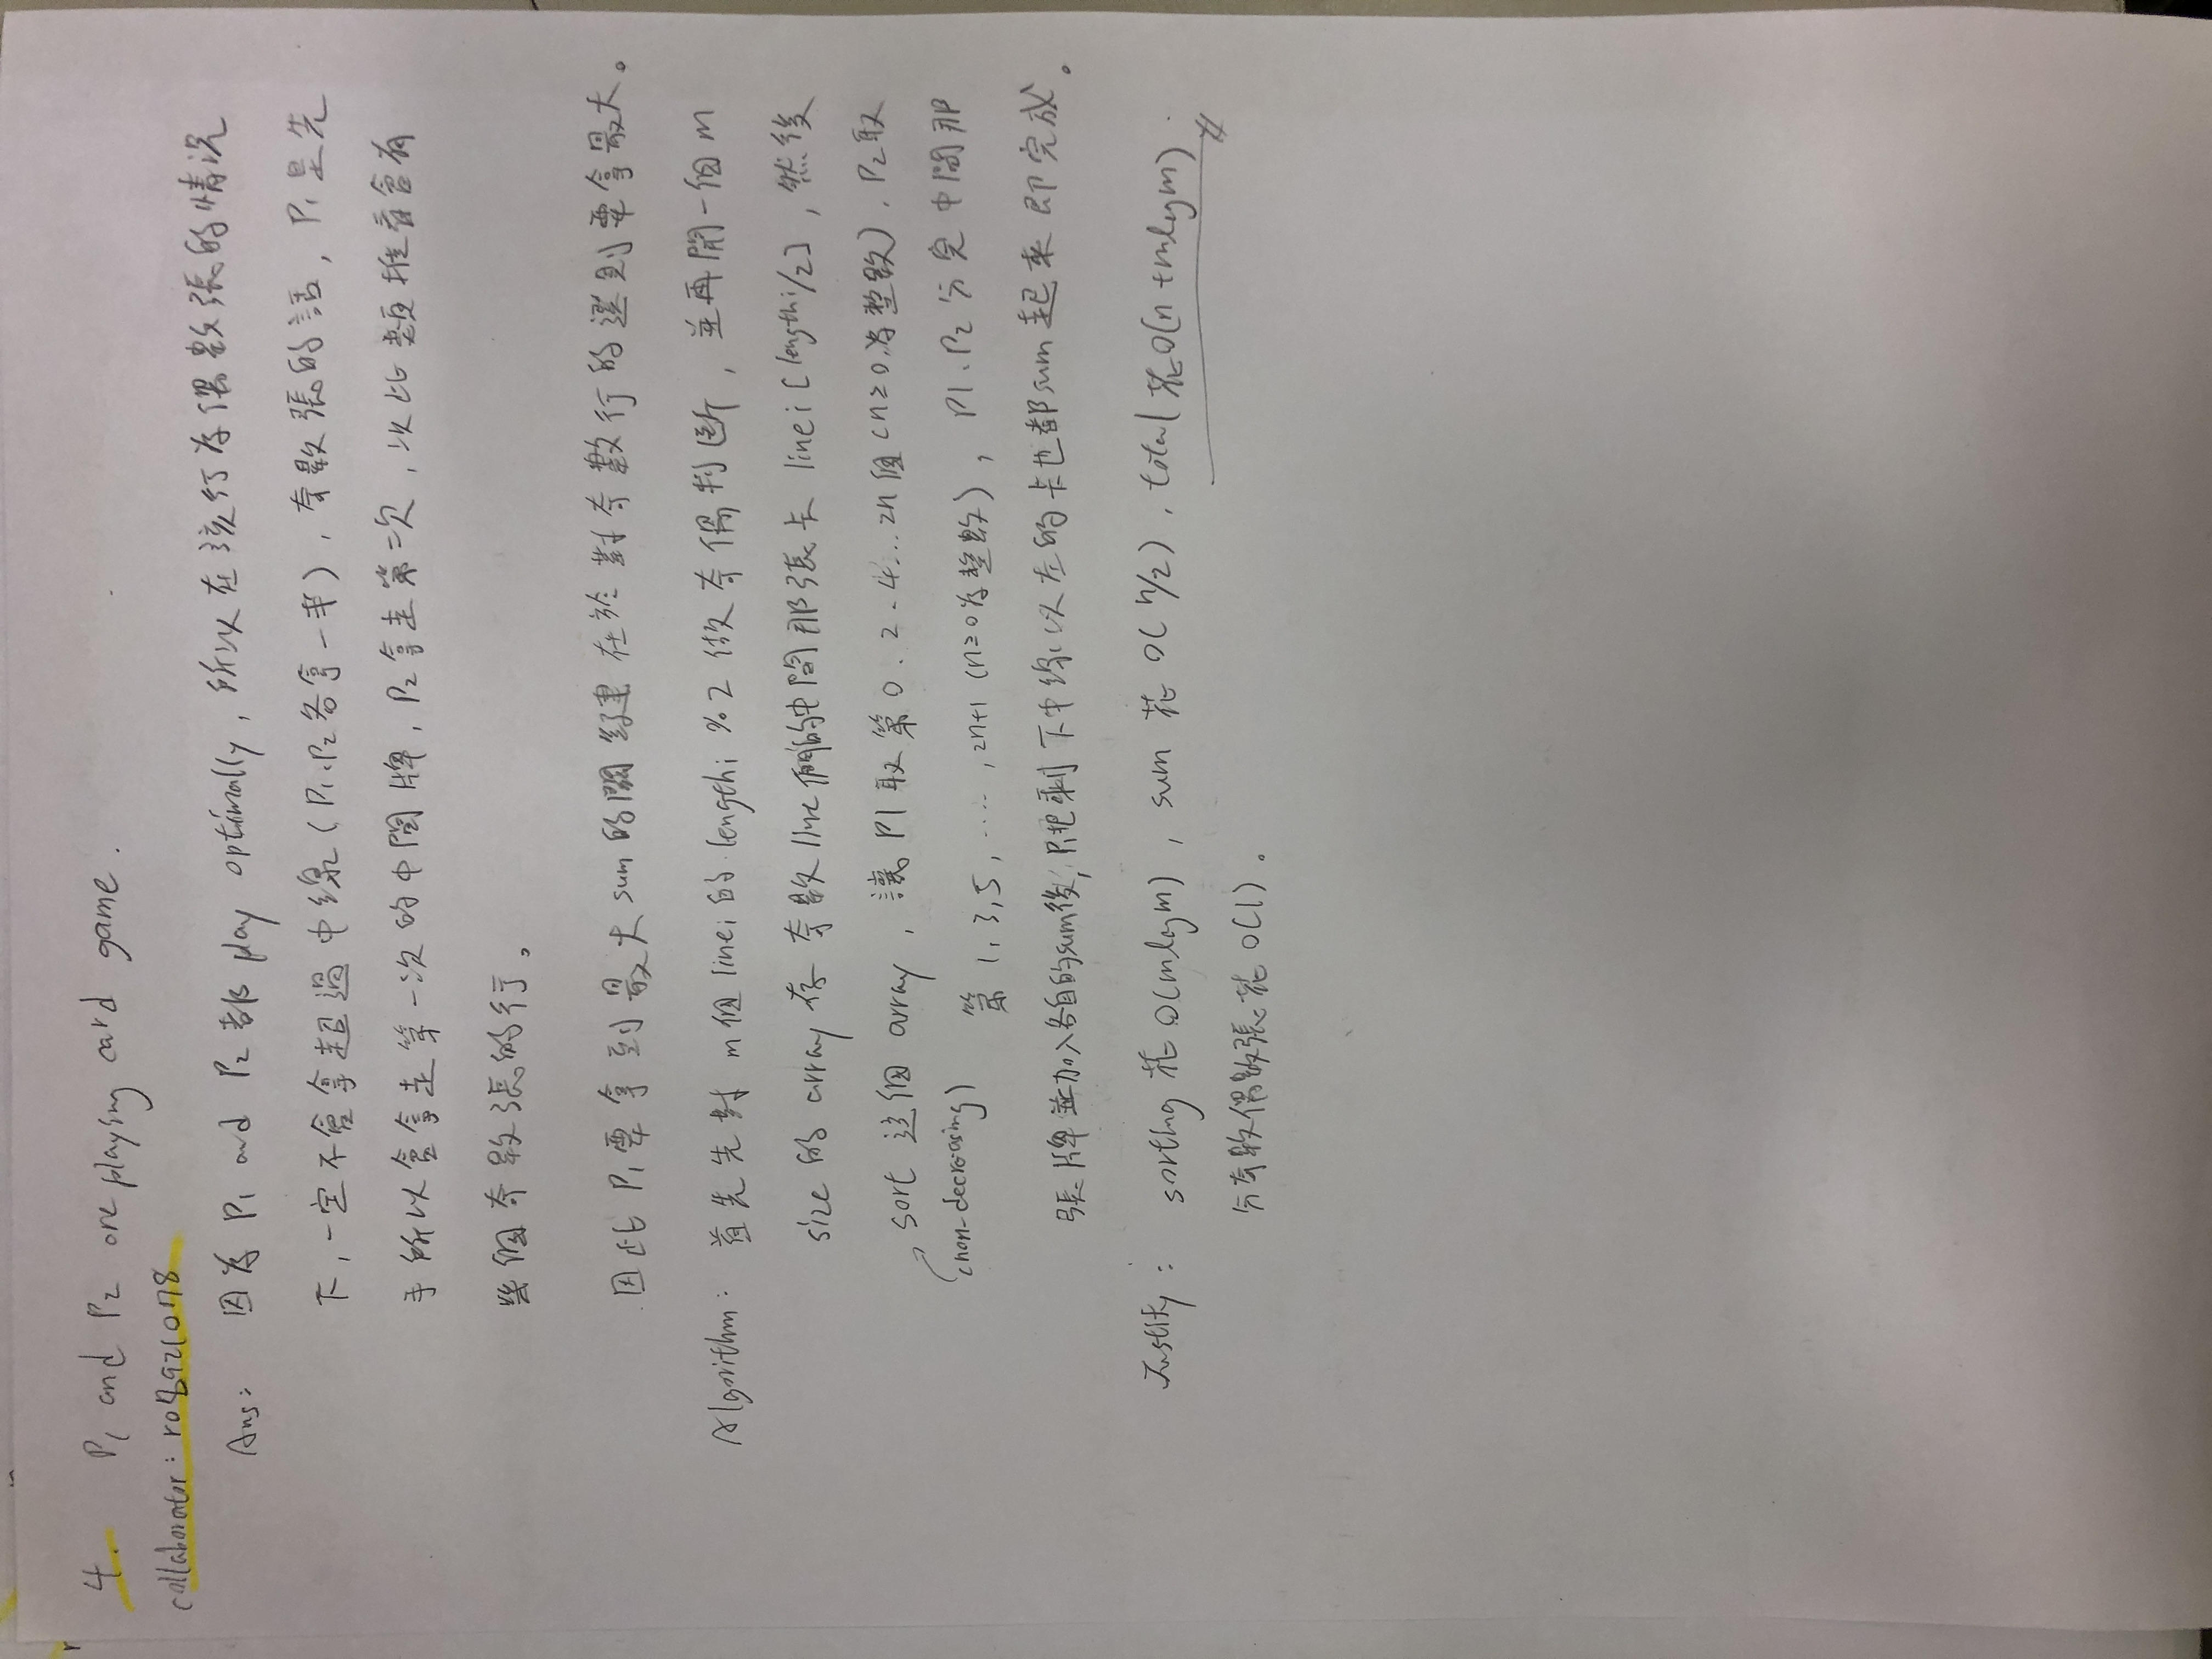 4. P1 and P2 are playing card game.
collaborator: r08921078
Ans: 因為 P1 and P2 都 play optimally, 所以在該行為偶數張的情況
下, 一定不會拿超過中線 (P1、P2各拿一半), 奇數張的話, P1是先
手所以會拿走第一次的中間牌, P2拿走第二次, 以此類推看會有
幾個奇數張的行。
因此 P1要拿到最大 sum 的關鍵在於對奇數行的選則要拿最大。
Algorithm: 首先先對 m個 linei 的 lengthi % 2 做奇偶判斷, 並再開一個 m
size 的 array 存奇數 line 們的中間那張卡 linei [lengthi/2], 然後
sort 這個 array, 讓 P1 取第 0、2、4...2n 個 (n≥0,為整數)、P2取
(non-decreasing) 第 1, 3, 5, ....., 2n+1 (n≥0為整數), P1、P2 分完中間那
張牌並加入各自的sum後, P1把剩下中線以左的卡也都sum起來即完成。
Justify: sorting 花 O(mlogm), sum 花 O(n/2), total 花O(n+mlogm)
分奇數偶數張花 O(1)。